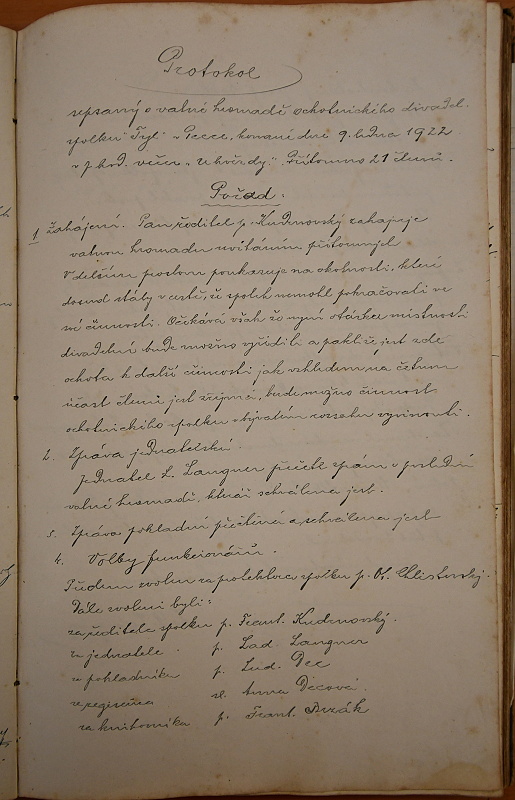 Protokol
sepsaný o valné hromadě ochotnického divadel.
spolku "Tyl" v Pecce, konané dne 9. ledna 1922
v 7 hod. večer "U hvězdy". Přítomno 21 členů.
Pořad:
1 Zahájení. Pan ředitel p. Kudrnovský zahajuje
valnou hromadu uvítáním přítomných
V delším proslovu poukazuje na okolnosti, které
dosud stály v cestě, že spolek nemohl pokračovati ve
své činnosti. Očekává však že nyní otázka místnosti
divadelní bude možno vyříditi a pakliže jest zde
ochota k další činnosti jak vzhledem na četnou
účast členů jest zřejmá, bude možno činnost
ochotnického spolku v bývalém rozsahu vyvinouti.
2. Zpráva jednatelská.
Jednatel L. Langner přečetl zprávu o poslední
valné hromadě, kteráž schválena jest.
3. Zpráva pokladní přečtena a schválena jest
4. Volby funkcionářů.
Předem zvolen za protektora spolku p.
Dále zvoleni byli:
za ředitele spolku p. Frant. Kudrnovský.
za jednatele p. Lad. Langner
za pokladníka p. Lud. Dec
za regiséra sl. Anna Decová.
za knihovníka p. Frant.